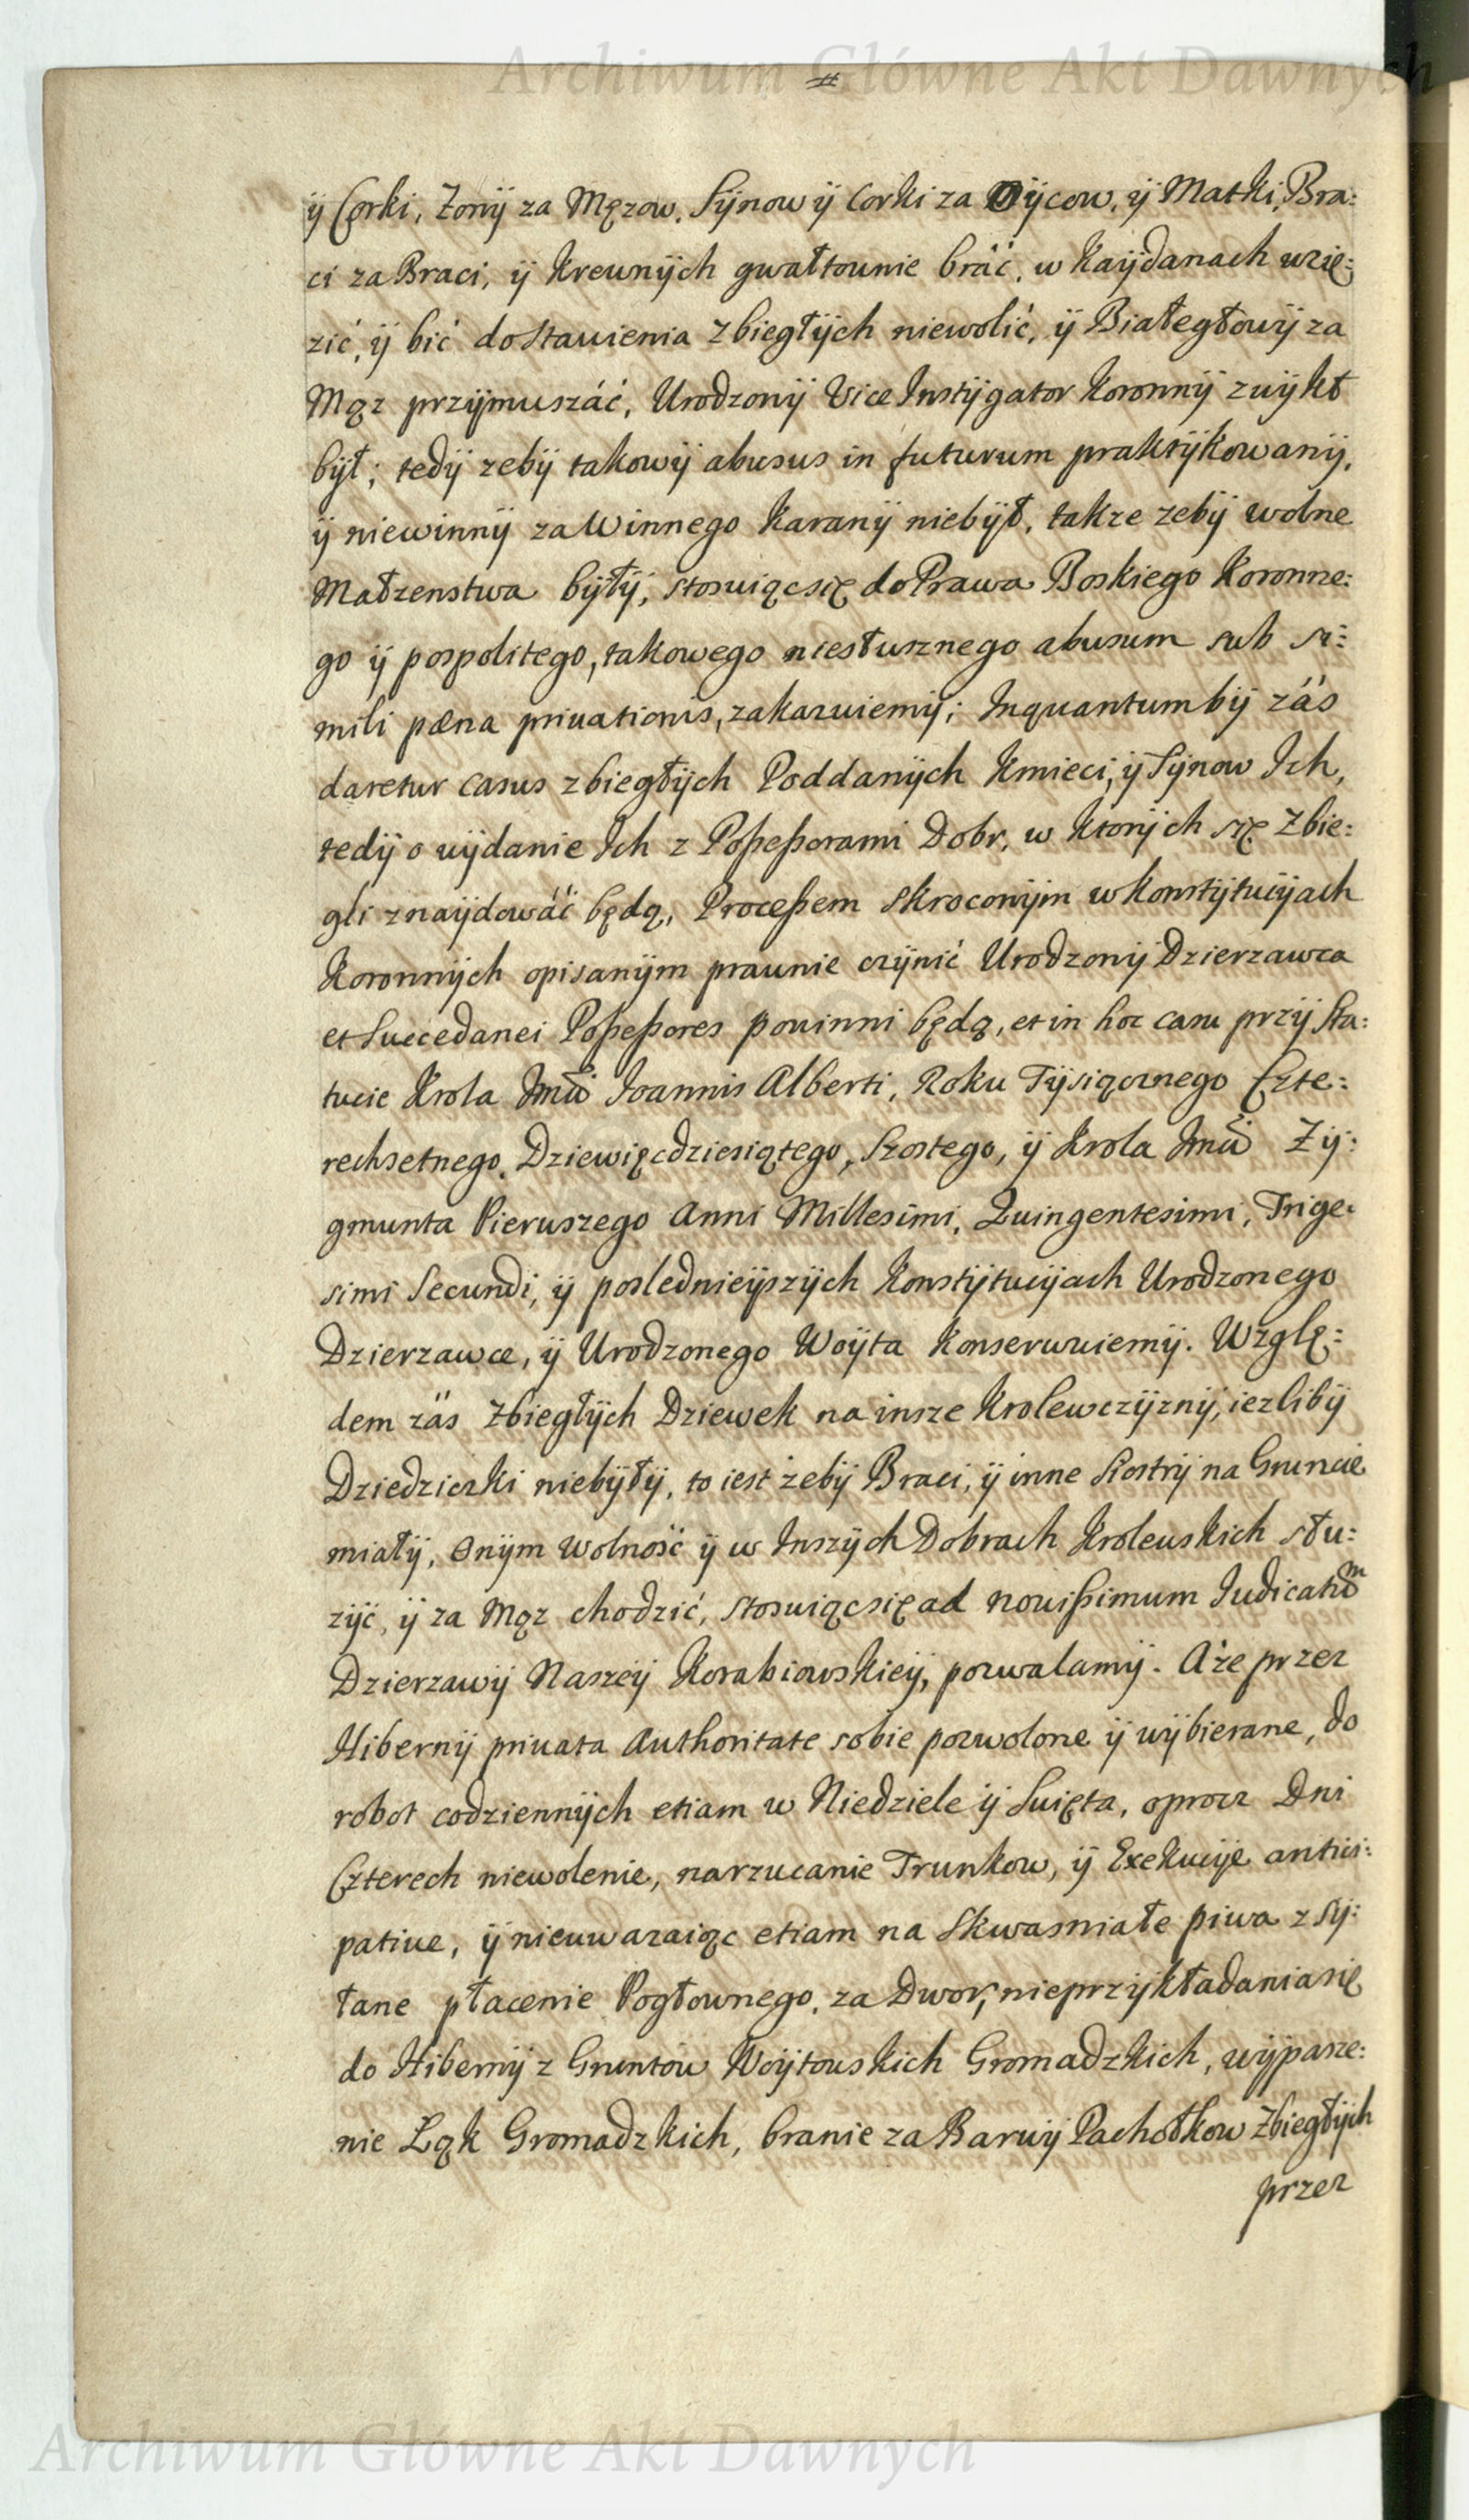 Archiwum Główne Akt Dawnych
ÿ Corki, Zonÿ za Męzow, Sÿnow ÿ Corki za Oÿcow, ÿ Matki, Bra:
ci za Braci, ÿ Krewnÿch gwałtownie bráć, w Kaÿdanach wzię:
zić, ÿ bić do stawienia zbiegłÿch niewolić, ÿ Białegłowÿ za
Mąz przÿmuszáć, Urodzonÿ Vice Instÿgator Koronnÿ zwÿkł
bÿł; tedÿ zebÿ takowÿ abusus in futurum praktÿkowanÿ,
ÿ niewinnÿ za Winnego Karanÿ niebÿł, takze zebÿ wolne
Małzenstwa bÿłÿ, stosuiąc się do Prawa Boskiego Koronne:
go ÿ pospolitego, takowego niesłusznego abusum sub si:
mili pæna priuationis, zakazuiemÿ; Inquantumbÿ záś
daretur casus zbiegłÿch Poddanÿch Kmieci, ÿ Sÿnow Ich,
tedÿ o wÿdanie Ich z Poßeßorami Dobr, w Ktorÿch się Zbie:
gli znaÿdowáć będą, Proceßem skroconÿm w Konstÿtucÿach
Koronnÿch opisanÿm prawnie czÿnić Urodzonÿ Dzierzawca
et Succedanei Poßeßores powinni będą, et in hoc casu przÿ Sta:
tucie Krola Jmći Joannis Alberti, Roku Tÿsiącznego Czte:
rechsetnego, Dziewięcdziesiątego, Szostego, ÿ Krola Jmći Zÿ:
gmunta Pierwszego Anni Millesimi, Quingentesimi, Trige:
simi Secundi, ÿ poslednieÿszÿch Konstÿtucÿach Urodzonego
Dzierzawce, ÿ Urodzonego Woÿta Konserwuiemÿ. Wzglę:
dem záś zbiegłÿch Dziewek na insze Krolewczÿznÿ, iezlibÿ
Dziedziczki niebÿłÿ, to iest żebÿ Braci, ÿ inne Siostrÿ na Gruncie
miałÿ, onÿm wolność ÿ w Inszÿch Dobrach Krolewskich słu:
zÿć, ÿ za Mąz chodzić, stosuiąc się ad nouißimum Judicatum
Dzierzawÿ Naszeÿ Korabiowskieÿ, pozwalamÿ. A że przez
Hibernÿ priuata Authoritate sobie pozwolone ÿ wÿbierane, do
robot codziennÿch etiam w Niedziele ÿ Swięta, oprocz Dni
Czterech niewolenie, narzucanie Trunkow, ÿ Exekucÿe antici:
patiue, ÿ nieuwazaiąc etiam na Skwasniałe piwa zsÿ:
łane płacenie Pogłownego, za Dwor, nieprzÿkładania się
do Hibernÿ z Gruntów Woÿtowskich Gromadzkich, wÿpasze:
nie Łąk Gromadzkich, branie za Barwÿ Pachołkow Zbiegłÿch
przez
Archiwum Główne Akt Dawnych